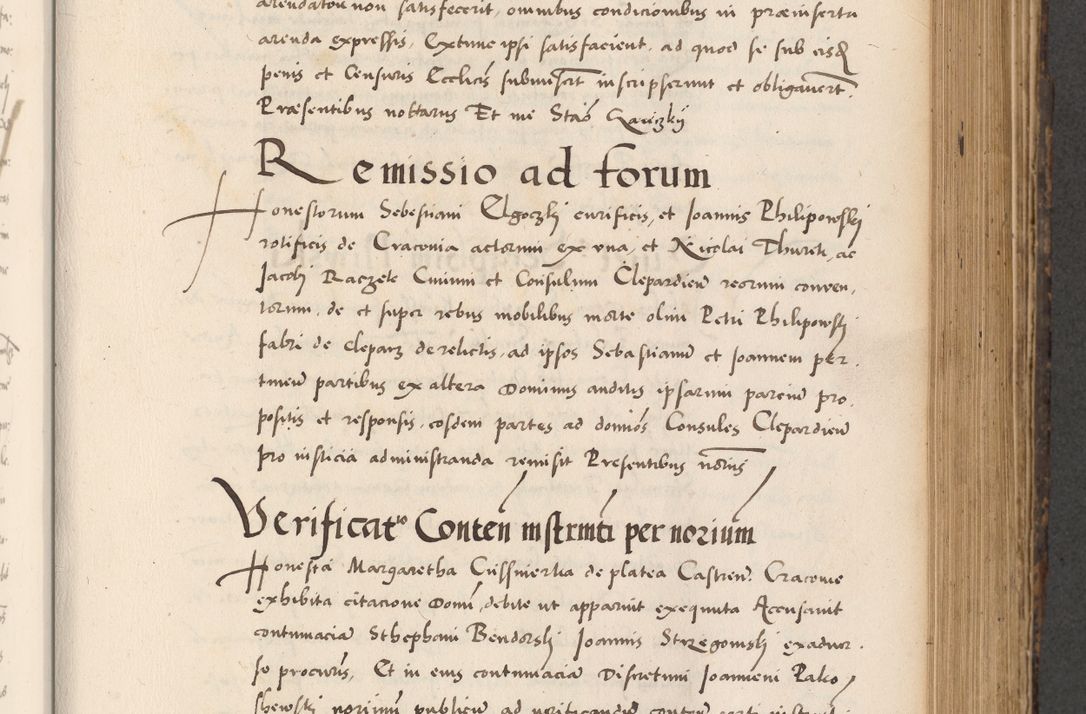 arendatori non satisfecerit, omnibus condicionibus in præinserta
arenda expressis, Extunc ipsi satisfacient, ad quod se sub eisd
penis et Censuris Ecclicis submiserunt inscripserunt et obligaverunt.
Præsentibus nottarus Et me Stao
Remissio ad forum
Honestorum Sebestiani Elgoczki eurificis, et Joannis Philipowskj
rotificis de Craconia actorum ex vna, et Nicolai Thureti, ac
Jacobj Raczek Ciuium et Consulum Clepardien reorum conven,
torum, de et super rebus mobilibus morte olim Petri Philipowskj
fabri de Cleparz derelictis, ad ipsos Sebastianum et Joannem per,
tinen partibus ex altera Dominus auditis ipsarum parcium pro,
positis et responsis, eosdem partes ad domios Consules Clepardien
pro iusticia administranda remisit Presentibus notariis
Verificatio Conten instrmti per norium
Honesta Margaretha de platea Castren. Cracovie
exhibita citacione Domi, debite ut apparuit exequuta Accusauit
contumaciam Sthephani Bendorskj Joannis Strzegomskj exadver,
so procuris, Et in eius contumaciam Discretum Joannem Rako,
shewskj norium publicum ad verificandum